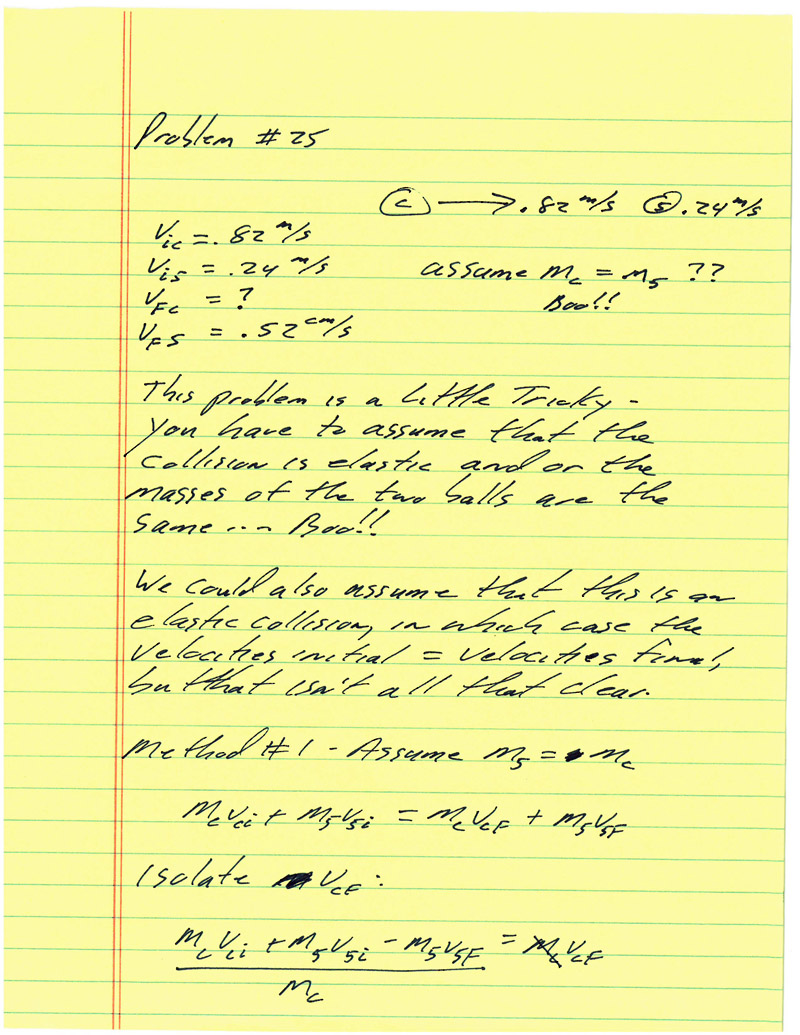 Problem # 25
C → .82 m/s 5 .24 m/s
Vic = .82 m/s
Vi5 = .24 m/s assume mc = m5 ??
VFc = ? Boo!!
VF5 = .52 cm/s
This problem is a little Tricky -
you have to assume that the
collision is elastic and or the
masses of the two balls are the
same --- Boo!!
We could also assume that this is an
elastic collision, in which case the
velocities initial = velocities final,
but that isn't all that clear.
Method #1 - Assume m5 = mc
mcvci + m5v5i = mcvcF + m5v5F
Isolate VcF:
mcvci + m5v5i - m5v5F = mcvcF
mc